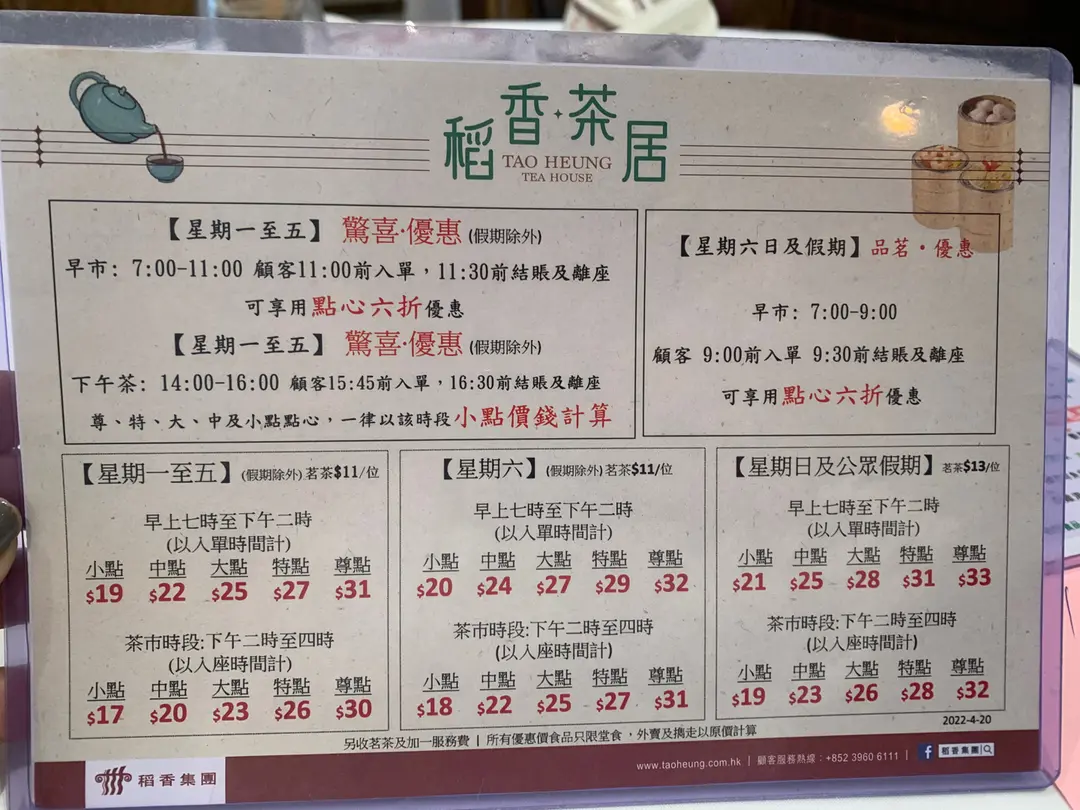 稻香·茶居
TAO HEUNG
TEA HOUSE
【星期一至五】 驚喜·優惠 (假期除外)
早市: 7:00-11:00 顧客11:00前入單，11:30前結賬及離座
可享用點心六折優惠
【星期一至五】 驚喜·優惠 (假期除外)
下午茶: 14:00-16:00 顧客15:45前入單，16:30前結賬及離座
尊、特、大、中及小點點心，一律以該時段小點價錢計算
【星期六日及假期】品茗·優惠
早市: 7:00-9:00
顧客 9:00前入單 9:30前結賬及離座
可享用點心六折優惠
【星期一至五】(假期除外) 茗茶$11/位
早上七時至下午二時
(以入單時間計)
小點 中點 大點 特點 尊點
$19 $22 $25 $27 $31
茶市時段:下午二時至四時
(以入座時間計)
小點 中點 大點 特點 尊點
$17 $20 $23 $26 $30
【星期六】(假期除外) 茗茶$11/位
早上七時至下午二時
(以入單時間計)
小點 中點 大點 特點 尊點
$20 $24 $27 $29 $32
茶市時段:下午二時至四時
(以入座時間計)
小點 中點 大點 特點 尊點
$18 $22 $25 $27 $31
【星期日及公眾假期】茗茶$13/位
早上七時至下午二時
(以入單時間計)
小點 中點 大點 特點 尊點
$21 $25 $28 $31 $33
茶市時段:下午二時至四時
(以入座時間計)
小點 中點 大點 特點 尊點
$19 $23 $26 $28 $32
2022-4-20
另收茗茶及加一服務費 | 所有優惠價食品只限堂食，外賣及携走以原價計算
稻香集團
www.taoheung.com.hk | 顧客服務熱線：+852 3960 6111 | f 稻香集團